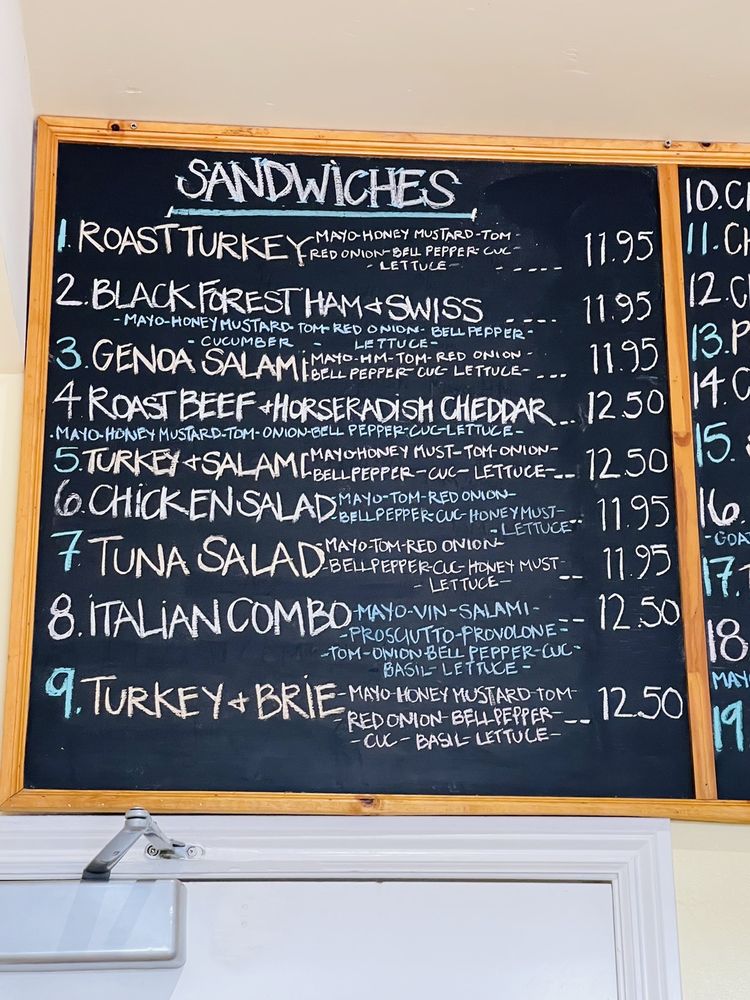 SANDWICHES
1. ROAST TURKEY -MAYO-HONEY MUSTARD-TOM-
RED ONION-BELL PEPPER-CUC-
-LETTUCE- ---- 11.95
2. BLACK FOREST HAM + SWISS ---- 11.95
-MAYO-HONEY MUSTARD-TOM-RED ONION-BELL PEPPER-
-CUCUMBER - LETTUCE-
3. GENOA SALAMI -MAYO-HM-TOM-RED ONION-
BELL PEPPER-CUC-LETTUCE- --- 11.95
4 ROAST BEEF + HORSERADISH CHEDDAR --- 12.50
-MAYO-HONEY MUSTARD-TOM-ONION-BELL PEPPER-CUC-LETTUCE-
5. TURKEY + SALAMI -MAYO-HONEY MUST-TOM-ONION-
BELL PEPPER-CUC-LETTUCE- -- 12.50
6. CHICKEN SALAD -MAYO-TOM-RED ONION-
-BELL PEPPER-CUC-HONEY MUST-
-LETTUCE- -- 11.95
7 TUNA SALAD -MAYO-TOM-RED ONION-
-BELL PEPPER-CUC-HONEY MUST-
-LETTUCE- -- 11.95
8. ITALIAN COMBO -MAYO-VIN-SALAMI- -- 12.50
-PROSCIUTTO-PROVOLONE-
-TOM-ONION-BELL PEPPER-CUC-
BASIL-LETTUCE-
9. TURKEY + BRIE -MAYO-HONEY MUSTARD-TOM-
RED ONION-BELL PEPPER- -- 12.50
-CUC-BASIL-LETTUCE-
10.
11.
12.
13.
14.
15.
16.
17.
18
MAYO
19